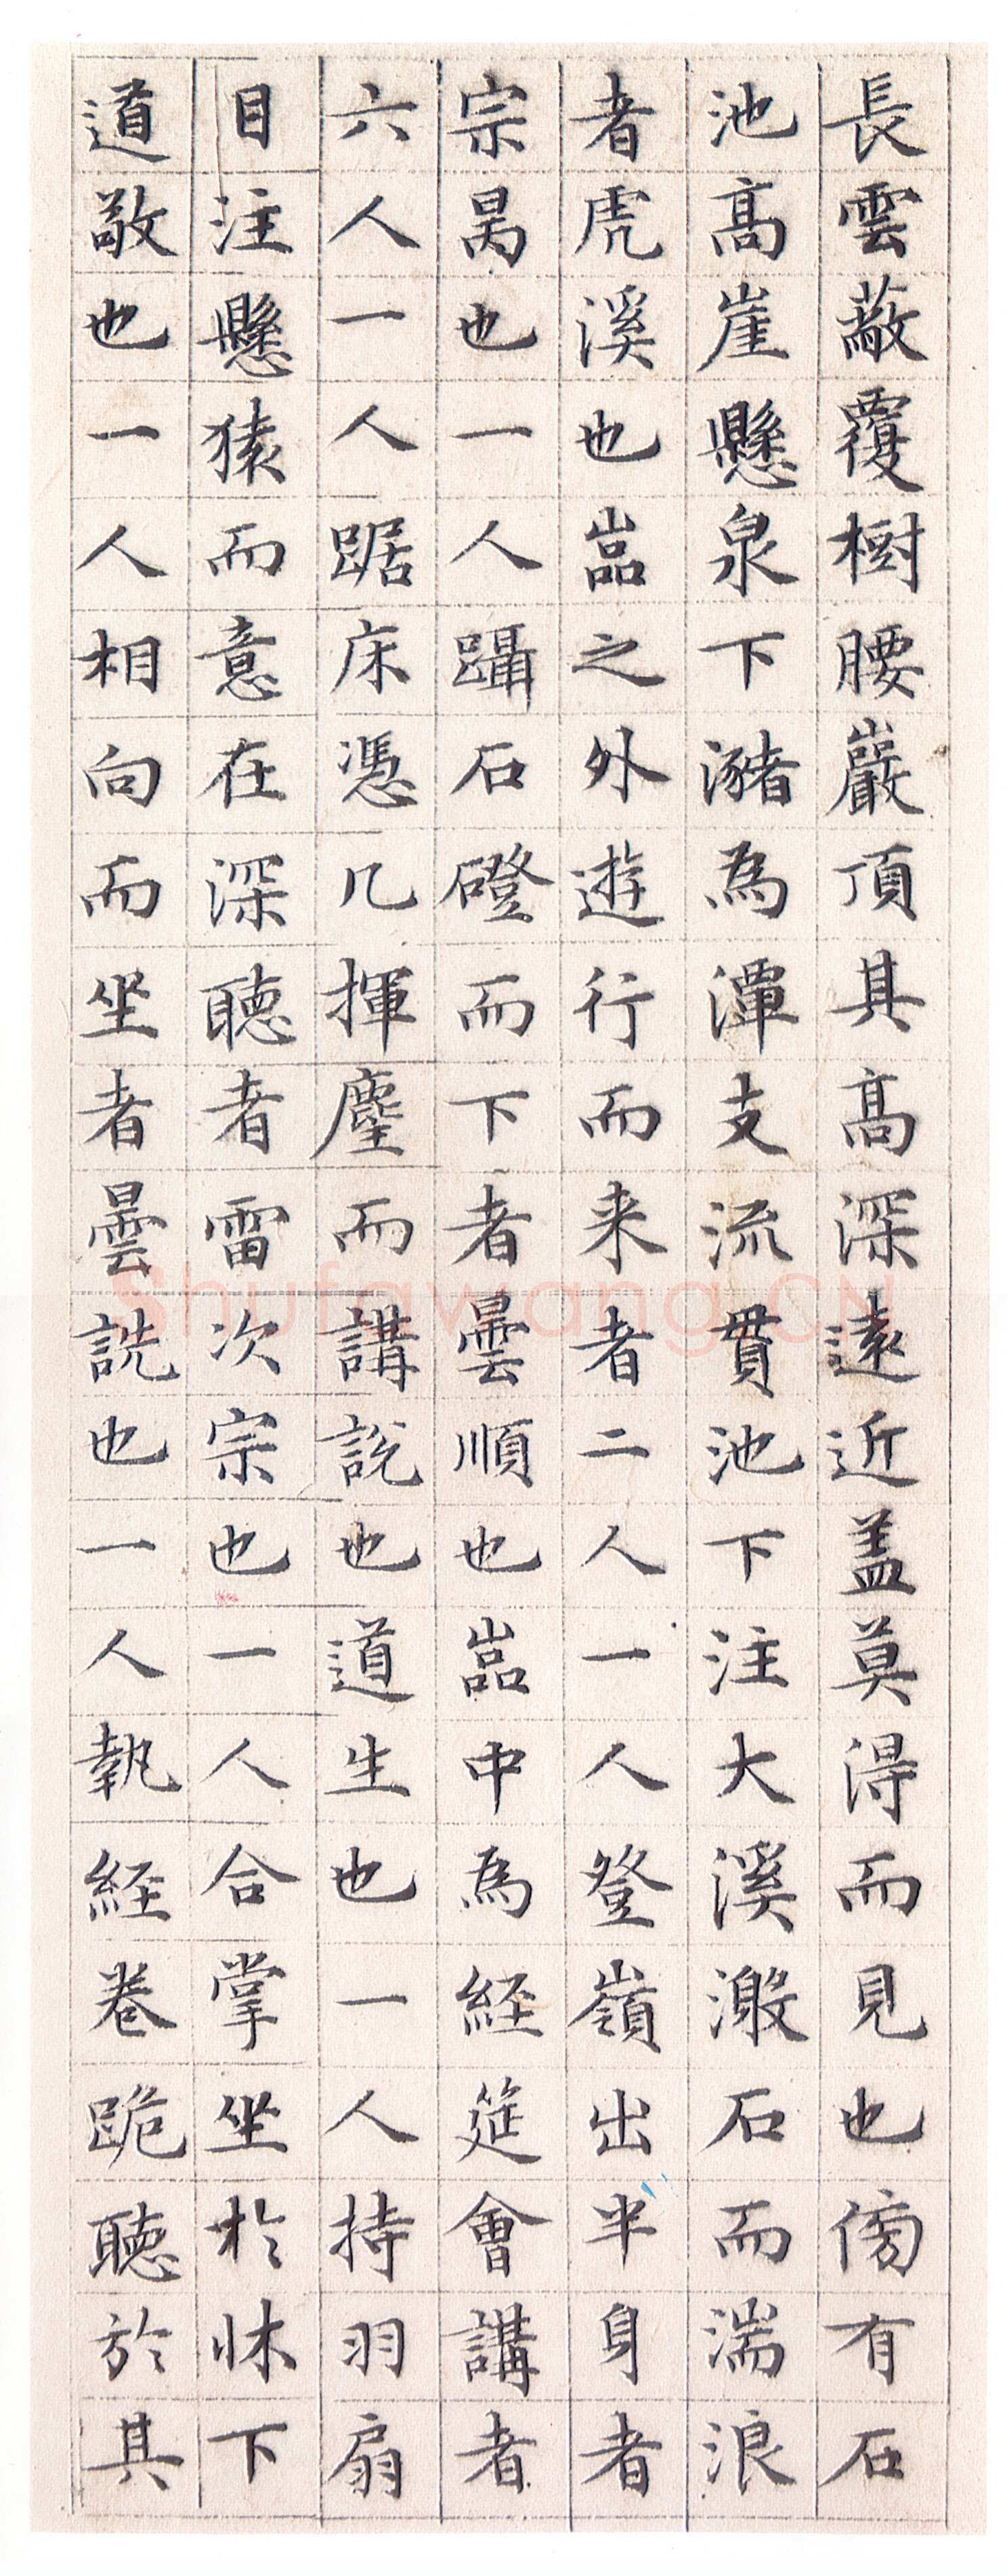 長雲蔽覆樹腰巖頂其高深遠近蓋莫得而見也傍有石
池高崖懸泉下瀦為潭支流貫池下注大溪激石而湍浪
者虎溪也嵓之外遊行而来者二人一人登嶺出半身者
宗昺也一人躡石磴而下者曇順也嵓中為經筵會講者
六人一人踞床憑几揮麈而講說也道生也一人持羽扇
目注懸猿而意在深聽者雷次宗也一人合掌坐於牀下
道敬也一人相向而坐者曇詵也一人執經卷跪聽於其
Shufawang.CN